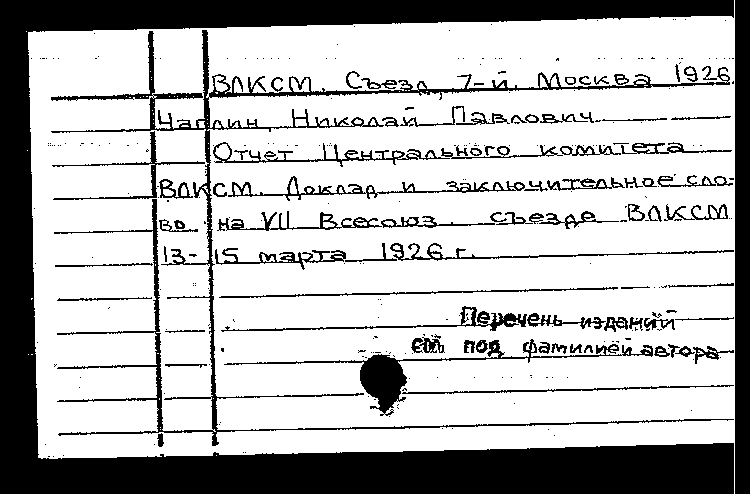 ВЛКСМ. Съезд, 7-й. Москва 1926.
Чаплин, Николай Павлович
Отчет Центрального комитета
ВЛКСМ. Доклад и заключительное сло-
во на VII Всесоюз. съезде ВЛКСМ
13-15 марта 1926 г.
Перечень изданий
см. под фамилией автора